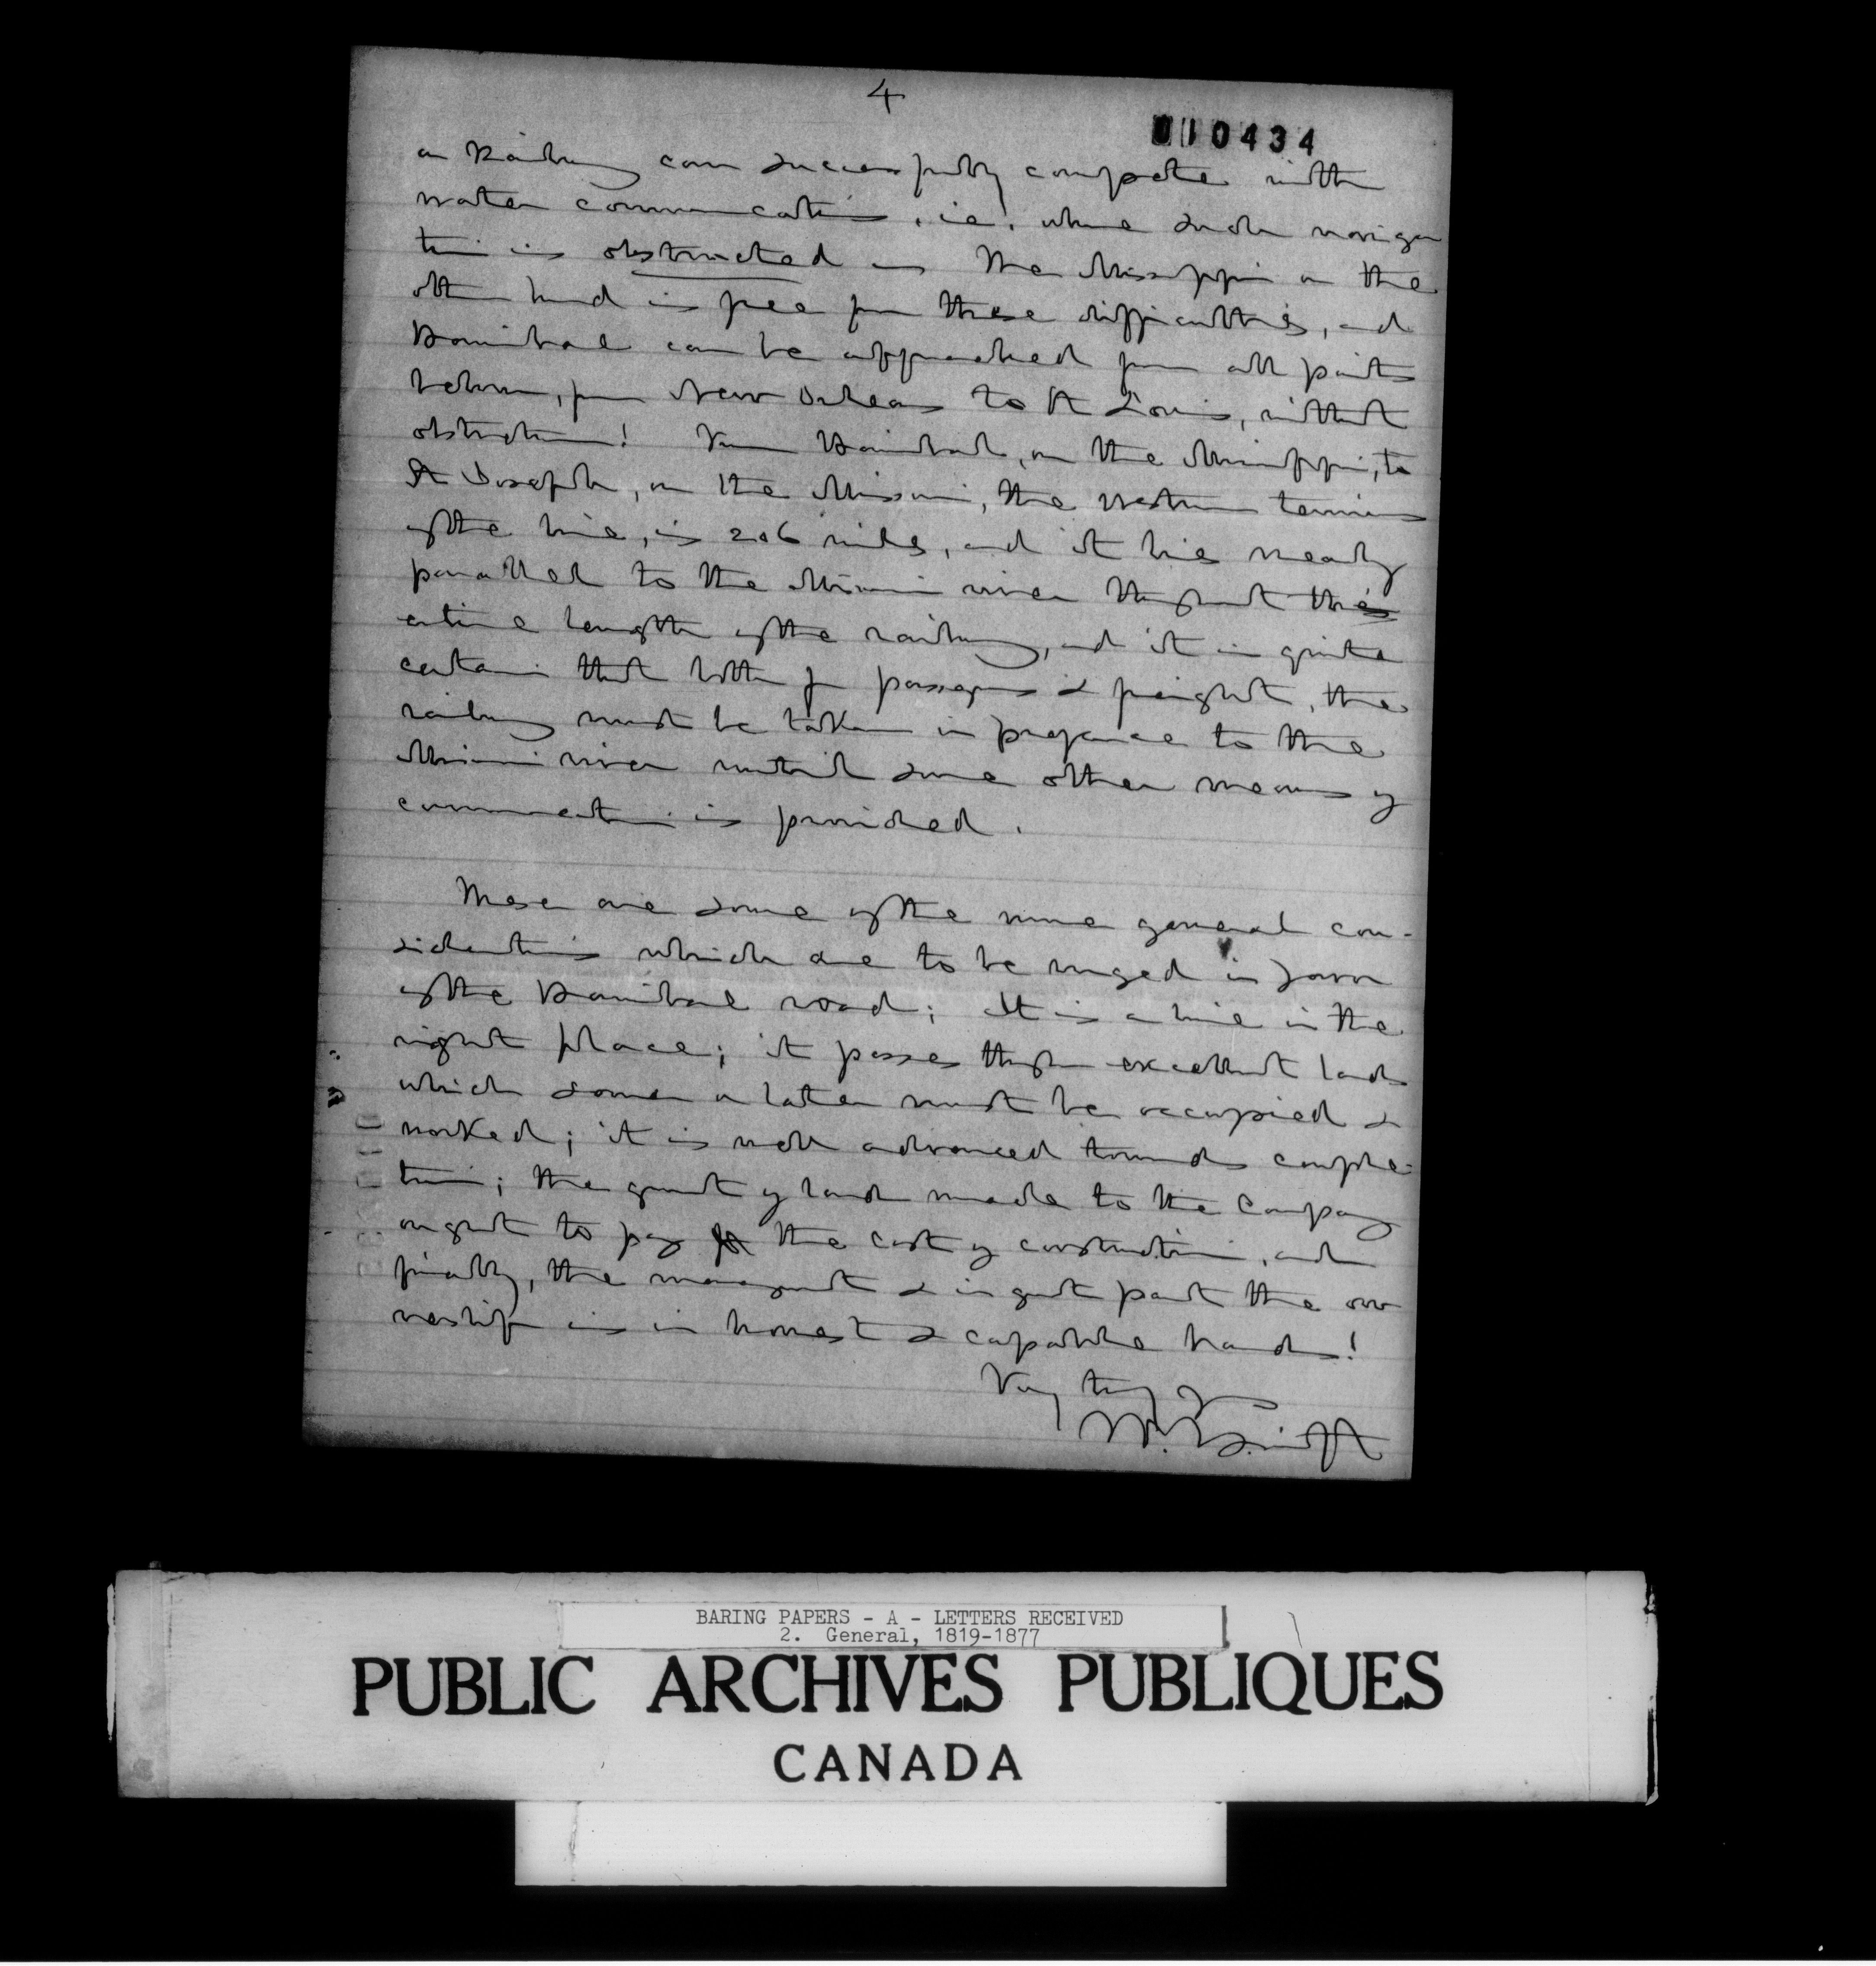 4
010434
a Railway can successfully compete with
water communication, i.e. where such naviga
tion is obstructed as The Mississippi on the
other hand is free from these difficulties, and
Hannibal can be approached from all points
below, from New Orleans to St Louis, without
obstruction! From Hannibal, on the Mississippi, to
St Joseph, on the Missouri, the western terminus
of the line, is 206 miles, and it lies nearly
parallel to the Missouri river throughout the
entire length of the railway, and it is quite
certain that both for passengers & freight, the
railway must be taken in preference to the
Missouri river until some other means of
communication is provided.
These are some of the more general con-
siderations which are to be urged in favor
of the Hannibal road; It is a line in the
right place; it passes through excellent lands
which sooner or later must be occupied &
worked; it is well advanced towards comple-
tion; the grant of land made to the Company
ought to pay the cost of construction, and
finally, the management & in great part the ow
nership is in honest & capable hands!
Very truly Yours
BARING PAPERS - A - LETTERS RECEIVED
2. General, 1819-1877
PUBLIC ARCHIVES PUBLIQUES
CANADA